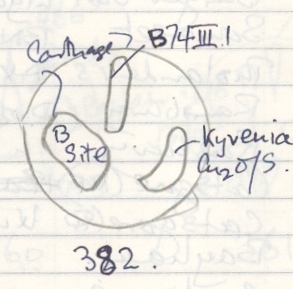 Carthage B74.III.1
B
Site
Kyrenia
Cu2O/S.
382.